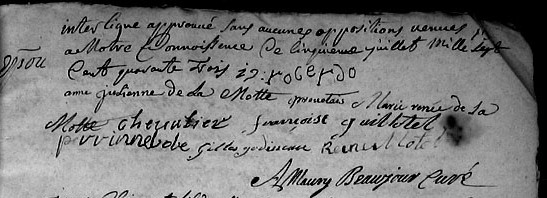 interligne approuvé sans aucunes oppositions venues
a Notre Connoissence Ce Cinquieme juillet Mille Sept
Cent quarante Trois
anne julienne de La Motte Marie renee de La
Motte chevalier francoise guilletel
perinne gilles godineau René Motel
AMaury Beaujour Curé